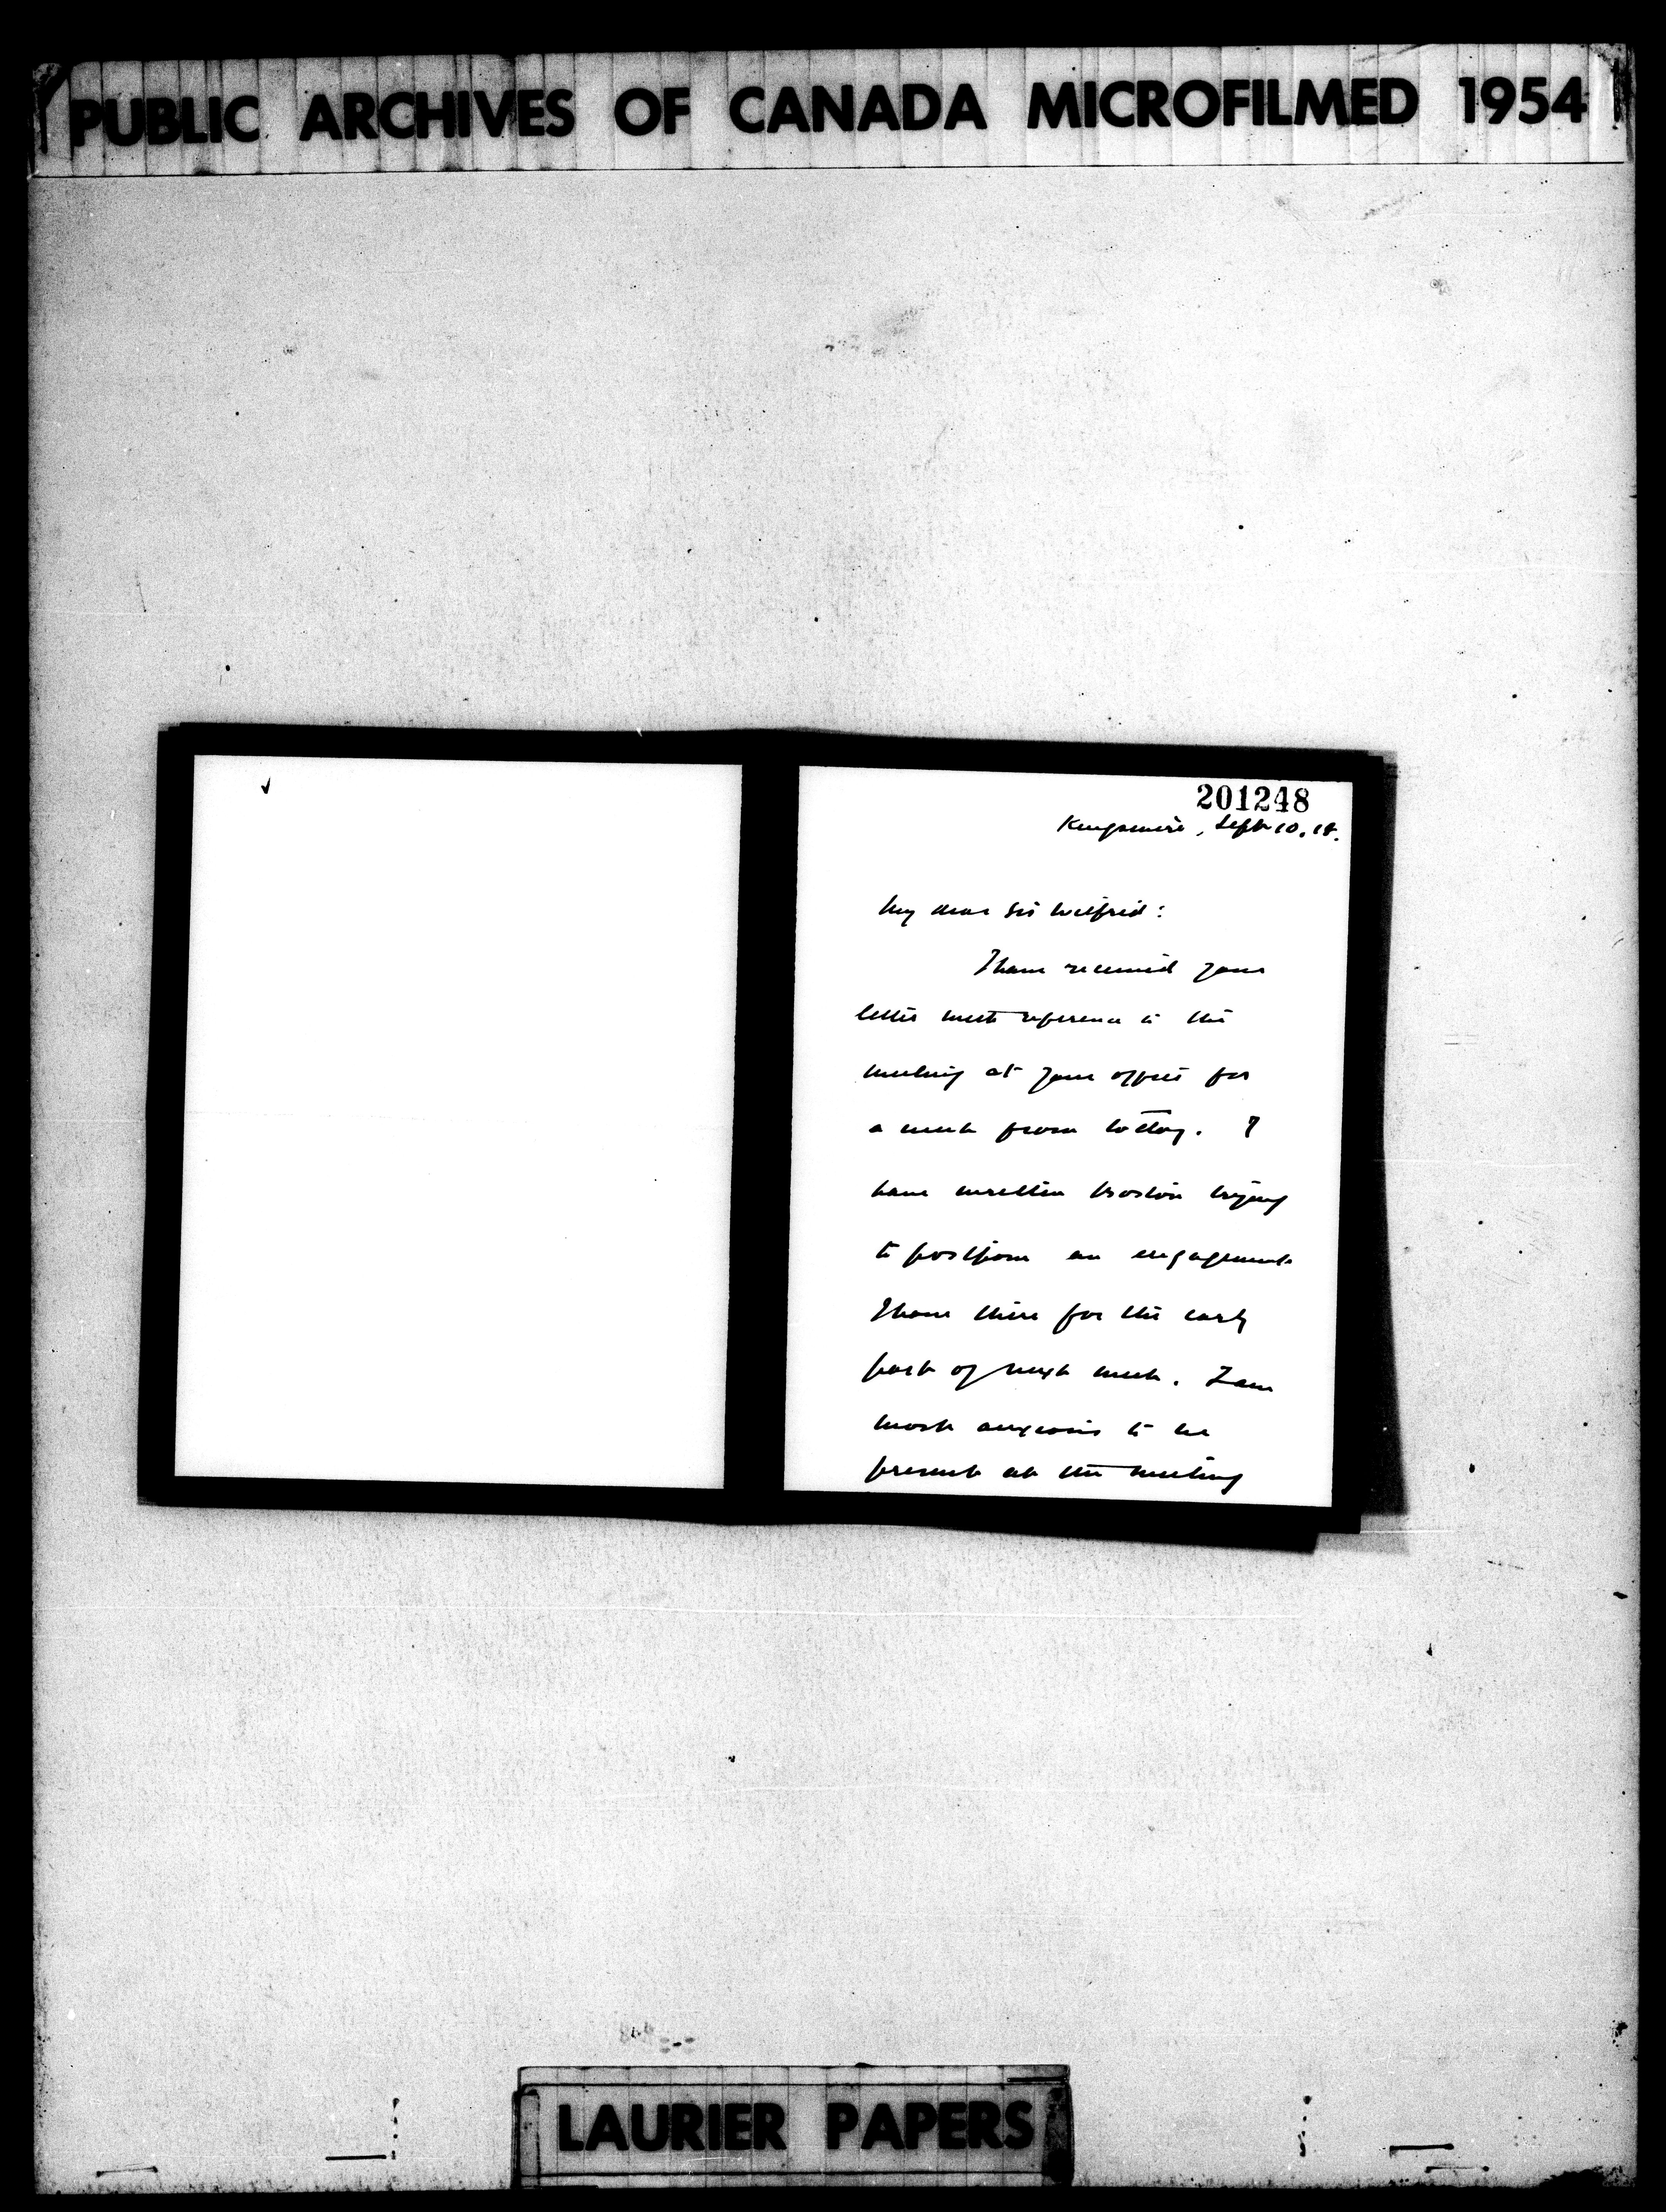 PUBLIC ARCHIVES OF CANADA MICROFILMED 1954
201248
Kingsmere, Sept 10. 18.
My dear Sir Wilfrid:
I have received your
letter with reference to the
meeting at your office for
a week from today. I
have written Boston trying
to postpone an engagement
I have there for the early
part of next week. I am
most anxious to be
present at the meeting
LAURIER PAPERS